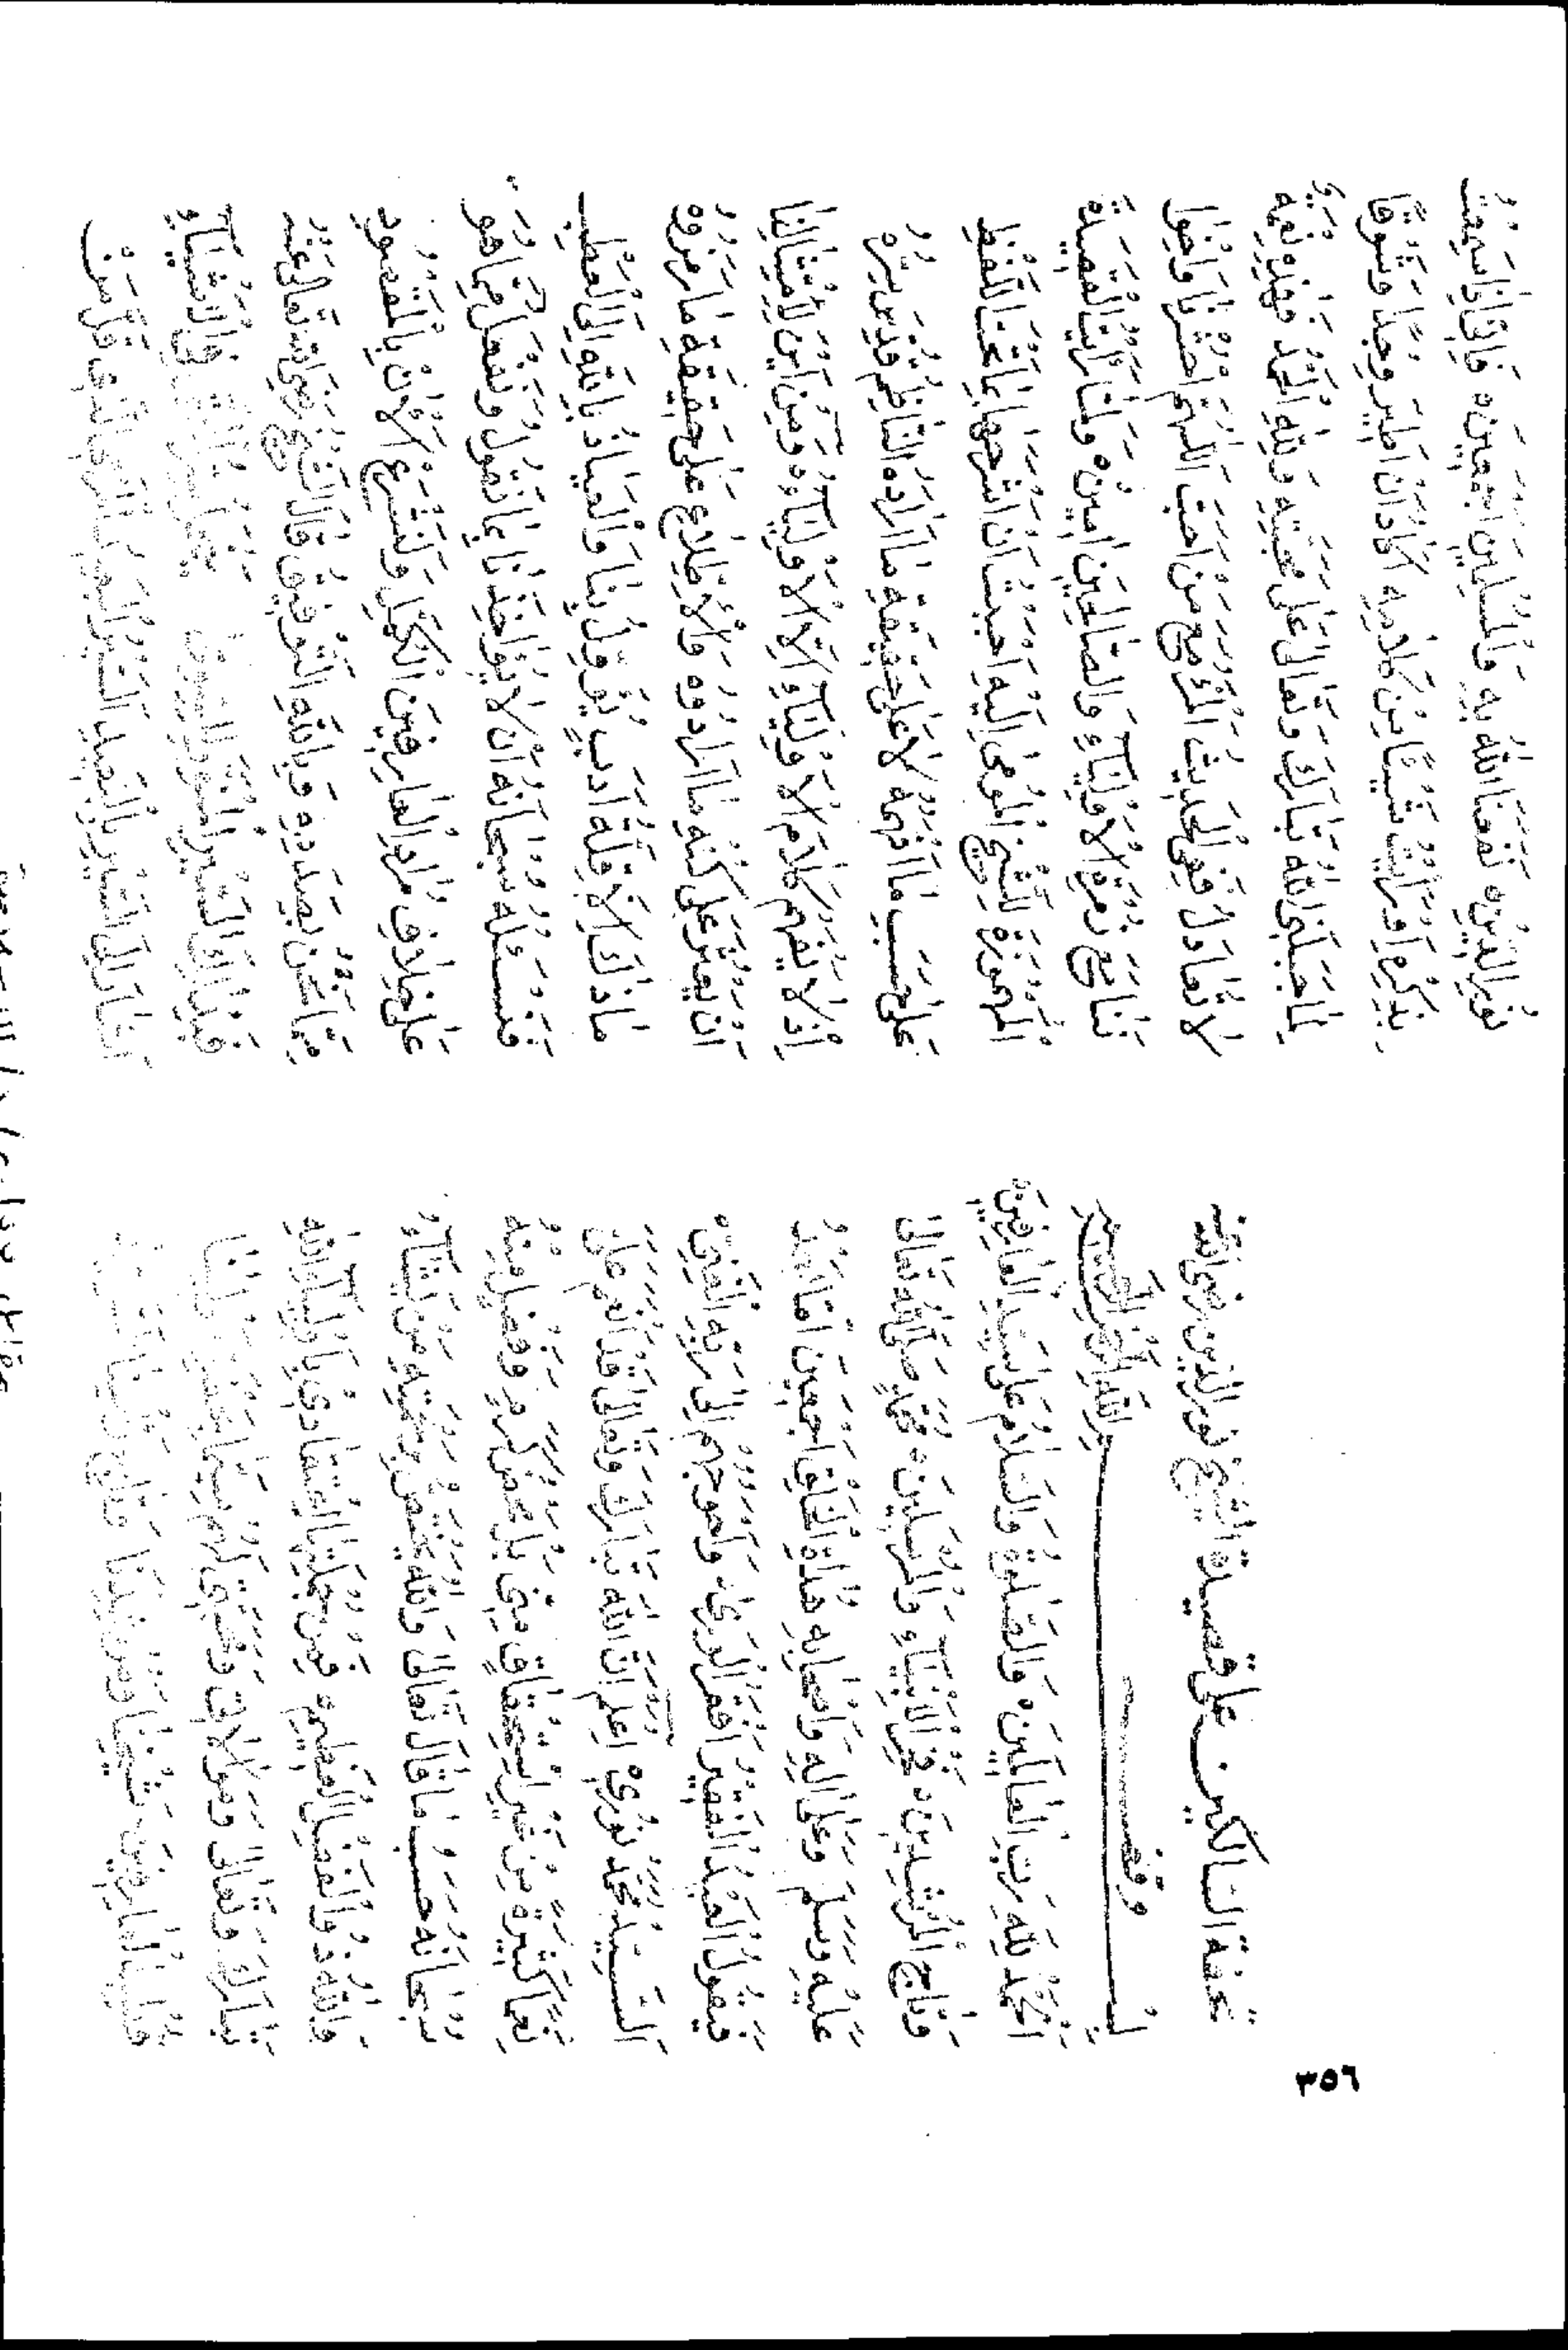 ٣٥٦
تحفة السالكين على قصيدة الشيخ نور الدين رضي الله عنه
بِسْمِ اللهِ الرَّحْمٰنِ الرَّحِيْمِ
اَلْحَمْدُ لِلّٰهِ رَبِّ الْعَالَمِيْنَ ٥ وَالصَّلٰوةُ وَالسَّلَامُ عَلٰى سَيِّدِ الْعَارِفِيْنَ ٥
وَتَاجِ الْمُرْشِدِيْنَ ٥ فَخْرِ الْاَنْبِيَاءِ وَالْمُرْسَلِيْنَ ٥ مُحَمَّدٍ صَلَّى اللهُ تَعَالٰى
عَلَيْهِ وَسَلَّمَ وَعَلٰى اٰلِهِ وَاَصْحَابِهِ هُدَاةِ الْخَلْقِ اَجْمَعِيْنَ اَمَّا بَعْدُ
فَيَقُوْلُ الْعَبْدُ الْفَقِيْرُ اَفْقَرُ الْوَرٰى وَاَحْوَجُهُمْ اِلٰى رَبِّهِ الْغَنِيِّ
اَلسَّيِّدُ مُحَمَّدْ نُوْرِيْ اِعْلَمْ اَنَّ اللهَ تَبَارَكَ وَتَعَالٰى قَدْ اَنْعَمَ عَلَيَّ
نِعَمًا كَثِيْرَةً مِنْ غَيْرِ اسْتِحْقَاقٍ مِنِّيْ بَلْ بِمَحْضِ كَرَمٍ وَفَضْلٍ مِنْهُ
سُبْحَانَهُ حَسْبَ مَا قَالَ تَعَالٰى وَاللهُ يَخْتَصُّ بِرَحْمَتِهِ مَنْ يَشَاءُ
وَاللهُ ذُو الْفَضْلِ الْعَظِيْمِ ٥ فَمِنْ جُمْلَتِهَا اعْتِقَادِيْ بِاَوْلِيَاءِ اللهِ
تَبَارَكَ وَتَعَالٰى وَمُوَالَاتِيْ وَمَحَبَّتِيْ لَهُمْ سِيَّمَا بِحَضْرَةِ مَوْلَانَا
الْعَارِفِيْنَ شَيْخِنَا وَمُرْشِدِنَا
نُوْرِ الدِّيْنِ ٥ نَفَعَنَا اللهُ بِهِ وَالْمُسْلِمِيْنَ اَجْمَعِيْنَ ٥ فَاِنِّيْ اِذَا سَمِعْتُ
بِذِكْرِهِ اَوْ رَاَيْتُ شَيْئًا مِنْ كَلَامِهِ اَكَادُ اَنْ اَطِيْرَ وَجْدًا وَشَوْقًا
لِمَا جَبَلَنِيَ اللهُ تَبَارَكَ وَتَعَالٰى عَلٰى مَحَبَّتِهِ وَلِلّٰهِ الْحَمْدُ فَهٰذِهِ نِعْمَةٌ
لَا تُعَادَلُ فَفِي الْحَدِيْثِ الْمَرْءُ مَعَ مَنْ اَحَبَّ اَللّٰهُمَّ احْشُرْنَا وَاِخْوَا
نَنَا مَعَ زُمْرَةِ الْاَوْلِيَاءِ وَالصَّالِحِيْنَ اٰمِيْنَ ٥ وَلَمَّا رَاَيْتُ الْقَصِيْدَةَ
الْمَهْمُوْزَةَ لِلشَّيْخِ الْمُوْمٰى اِلَيْهِ اَحْبَبْتُ اَنْ اَشْرَحَهَا بِمَا تَحْتَ اللَّفْظِ
عَلٰى حَسَبِ مَا اَفْهَمُهُ لَا عَلٰى حَقِيْقَةِ مَا اَرَادَهُ النَّاظِمُ قُدِّسَ سِرُّهُ
اِذْ لَا يَفْهَمُ كَلَامَ الْاَوْلِيَاءِ اِلَّا الْاَوْلِيَاءُ وَمِنْ اَيْنَ لِاَمْثَالِنَا
اَنْ يَعْثُرَ عَلٰى كُنْهِ مَا اَرَادُوْهُ وَالْاِطِّلَاعِ عَلٰى حَقِيْقَةِ مَا رَمَزُوْهُ
مَا ذٰلِكَ اِلَّا قِلَّةُ اَدَبٍ يُؤَوِّلُ بِنَا وَالْعِيَاذُ بِاللهِ اِلَى الْعَطَبِ
فَنَسْئَلُهُ سُبْحَانَهُ اَنْ لَا يُؤَاخِذَنَا بِمَا نَقُوْلُ وَنَفْعَلُ مِمَّا هُوَ
عَلٰى خِلَافِ مُرَادِ الْعَارِفِيْنَ الْكُمَّلِ وَلْنَشْرَعِ الْاٰنَ بِالْمَقْصُوْدِ
مِمَّا نَحْنُ بِصَدَدِهِ وَبِاللهِ التَّوْفِيْقُ قَالَ الشَّيْخُ رَضِيَ اللهُ تَعَالٰى عَنْهُ
فِي الْاَشْيَاءِ